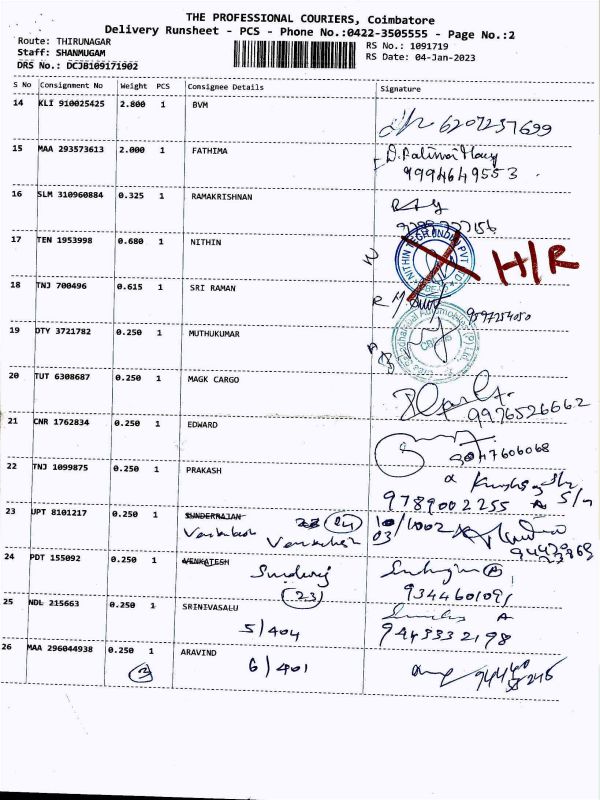 THE PROFESSIONAL COURIERS, Coimbatore
Delivery Runsheet - PCS - Phone No.:0422-3505555 - Page No.:2
Route: THIRUNAGAR
Staff: SHANMUGAM
DRS No.: DCJB109171902
RS No.: 1091719
RS Date: 04-Jan-2023
S No Consignment No Weight PCS Consignee Details Signature
14 KLI 910025425 2.800 1 BVM
6207257699
15 MAA 293573613 2.000 1 FATHIMA
9994649553
16 SLM 310960884 0.325 1 RAMAKRISHNAN
17 TEN 1953998 0.680 1 NITHIN
H/R
18 TNJ 700496 0.615 1 SRI RAMAN
9597254050
19 DTY 3721782 0.250 1 MUTHUKUMAR
20 TUT 6308687 0.250 1 MAGK CARGO
9976526662
21 CNR 1762834 0.250 1 EDWARD
9047606068
22 TNJ 1099875 0.250 1 PRAKASH
9789002255 S/n
23 UPT 8101217 0.250 1 SUNDERRAJAN
Venkatesh 24 10/1002
Venkatesh 03
24 PDT 155092 0.250 1 VENKATESH
Sunderaj
(23) 9344601091
25 NDL 215663 0.250 1 SRINIVASALU
5/404 9443332198
26 MAA 296044938 0.250 1 ARAVIND
6/401